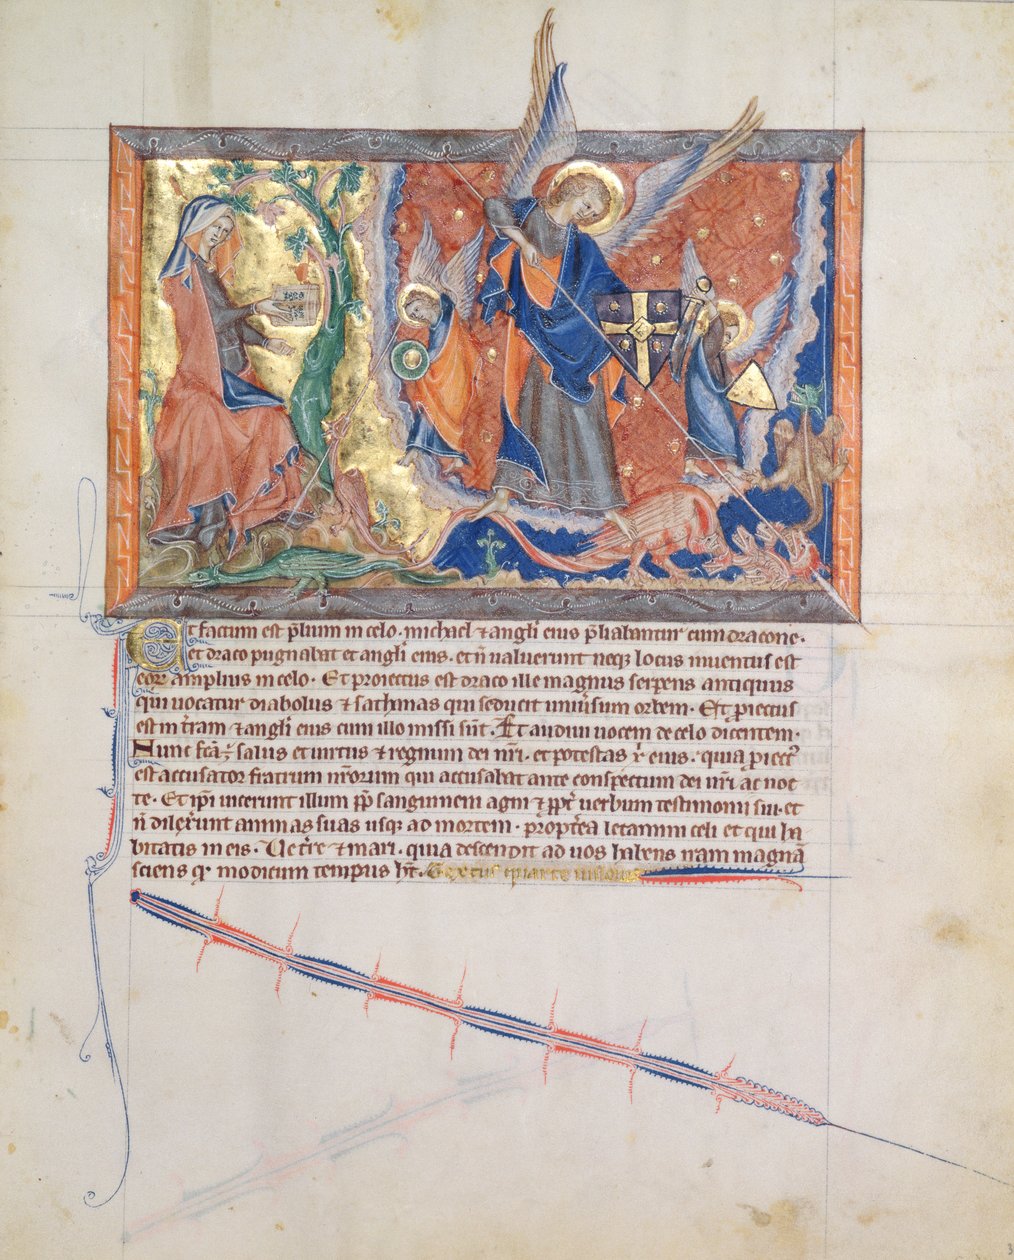 Et factum est p̄lium in celo. michael ⁊ angl̄i eius p̄liabantur cum dracone.
et draco pugnabat et angl̄i eius. et ñ ualuerunt neqꝫ locus inuentus est
eor̄ amplius in celo. Et proiectus est draco ille magnus serpens antiquus
qui uocatur diabolus ⁊ sathanas qui seducit uniu͛sum orbem. Et ꝓiectus
est in t͛ram ⁊ angl̄i eius cum illo missi sūt. Et audiui uocem de celo dicentem.
Nunc fc̄a ē salus et uirtus ⁊ regnum dei nr̄i. et potestas xp̄i eius. quia ꝓiect᷒
est accusator fratrum nr̄orum qui accusabat ante conspectum dei nr̄i ac noc
te. Et ip̄i uicerunt illum pp̄ sanguinem agni ⁊ ꝓpt͛ uerbum testimonii sui. et
ñ dilex̄runt animas suas usqꝫ ad mortem. propt͛ea letamini celi et qui ha
bitatis in eis. Ue t͛re ⁊ mari. quia descendit ad uos habens iram magnā
sciens qꝫ modicum tempus ht̄.